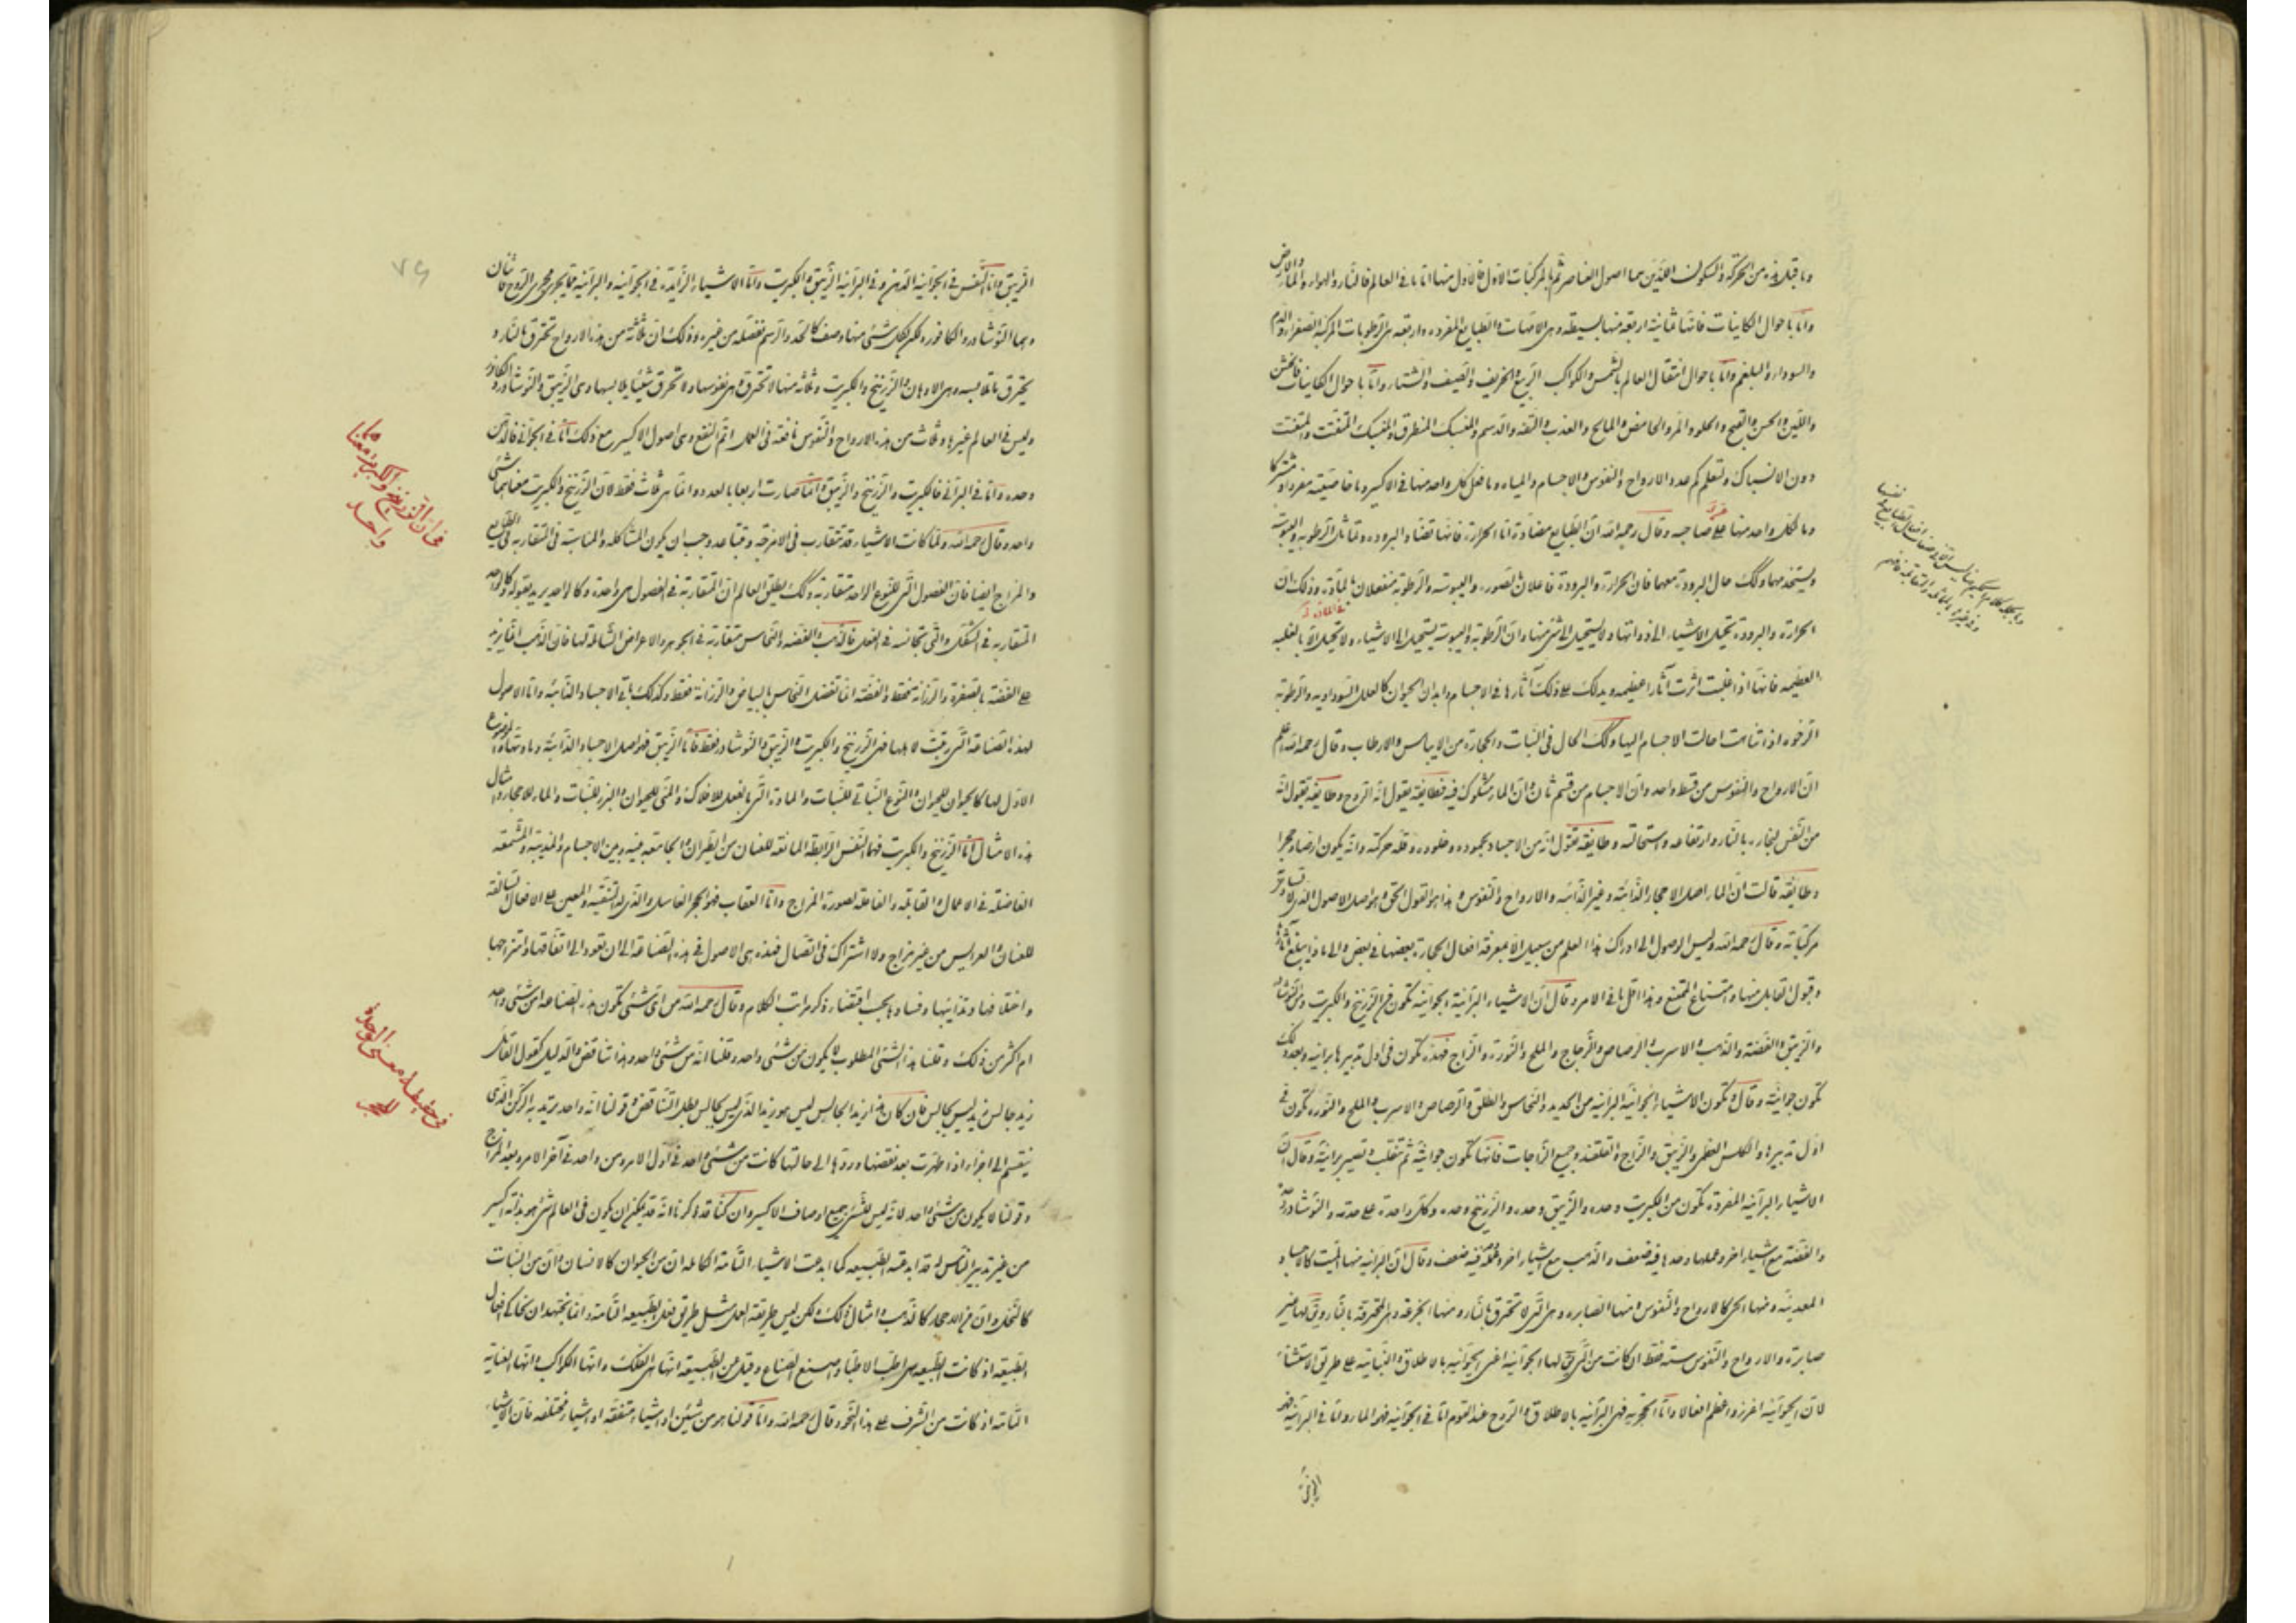 وما قبل هذه من الحركة والسكون اللذين هما اصول العناصر ثم بالمركبات الاول فالاول منها اما ما في العالم فالنار والهواء والماء والارض
واما باحوال الكاينات فانها ثمانية اربعة منها بسيطة وهى الامهات والطبايع المفردة واربعة هى الرطوبات المركبة الصفراء والدم
والسوداء والبلغم واما باحوال انتقال العالم بالشمس والكواكب الربيع والخريف والصيف والشتاء واما باحوال الكاينات فالخشن
واللين والحسن والقبح والحلو والمر والحامض والمالح والعذب والتفه والدسم والمنسبك المنطرق والمنسبك المتفتت والمتفتت
دون الانسباك وتعلم كم عدد الارواح والنفوس والاجسام والمياه وما فعل كل واحد منها في الاكسير وما خاصيته مفردا ومشتركا
وما لكل واحد منها على صاحبه وقال رحمه الله ان الطبايع مضادة اما الحرارة فانها تضاد البرودة وتماثل الرطوبة واليبوسة
ويتحد معهما وكذلك حال البرودة معهما فان الحرارة والبرودة فاعلان للصورة واليبوسة والرطوبة منفعلان للمادة وذلك ان
الحرارة والبرودة تحيل الاشياء الى ذواتها ولا يستحيل الى شئ منها وان الرطوبة واليبوسة يستحيل الى الاشياء ولا تحيل الا بالغلبة
العظيمة فانها اذا غلبت اثرت آثارا عظيمة ويدلك على ذلك آثارها في الاجسام وابدان الحيوان كالعلل السوداوية والرطوبة
الرخوة اذا تناهت احالت الاجسام اليها وكذلك الحال في النبات والحجارة من الايباس والارطاب وقال رحمه الله اعلم
ان الارواح والنفوس من قسط واحد وان الاجسام من قسم ثان وان الماء مشكوك فيه فطايفة يقول انه الروح وطايفة يقول انه
من النفس لبخاره بالنار وارتفاعه واستحالته وطايفة تقول انه من الاجساد لجموده وخلوده وقلة حركته وانه يكون ارضا وحجرا
وطايفة قالت ان الماء اصل الاحجار الذائبة وغير الذائبة والارواح والنفوس وهذا هو القول الحق وهو اصل الاصول الذى
مركباته وقال رحمه الله وليس الوصول الى ادراك هذا العلم من سبيل الا بمعرفة افعال الحجارة بعضها في بعض والى ماذا يبلغ
وقبول القابل منها وامتناع الممتنع وهذا اقل ما في الامر وقال ان الاشياء البرانية الجوانية تكون من الزرنيخ والكبريت ومن النوشادر
والزيبق والفضة والذهب والاسرب والرصاص والزجاج والملح والنورة والزاج فهذه تكون في اول تدبيرها برانية وبعد ذلك
تكون جوانية وقال وتكون الاشياء الجوانية البرانية من الحديد والنحاس والطلق والرصاص والاسرب والملح والنورة تكون في
اول تدبيرها والكلس العظمى والزيبق والزاج والقلقند وجميع الزاجات فانها تكون جوانية ثم تنقلب وتصير برانية وقال ان
الاشياء البرانية المفردة تكون من الكبريت وحده والزيبق وحده والزرنيخ وحده وكل واحدة على حدته والنوشادر وحده
والفضة مع اشياء اخر وعملها وحدها فيه ضعف والذهب مع اشياء اخر وعمله فيه ضعف وقال ان البرانية منها الميت كالاجساد
المعدنية ومنها الحى كالارواح والنفوس ومنها الصابرة وهى التى لا تحترق بالنار ومنها الجزعة وهى المحترقة بالنار غير
صابرة والارواح والنفوس ستة فقط ان كانت من التى لها الجوانية اعنى الحيوانية بالاطلاق والنباتية على طريق الاستثناء
لان الحيوانية اغزر واعظم افعالا واما الحجرية فهى البرانية بالاطلاق والروح عند القوم اما في الجوانية فهو الماء واما في البرانية فهو
الزيبق
الزيبق واما النفس في الجوانية الدهن وفي البرانية الزيبق والكبريت واما الاشياء الزايدة في الجوانية والبرانية مما يجرى مجرى الروح فاثنان
وهما النوشادر والكافور ولكن لكل شئ منها وصف كالحد والرسم تفصله من غيره وذلك ان ثلاثة من هذه الارواح تحترق بالنار و
يحترق ما تلابسه وهى الادهان والزرنيخ والكبريت وثلاثة منها لا تحترق هى نفوسها ولا تحرق شيئا يلابسها وهى الزيبق والنوشادر والكافور
وليس في العالم غيرها وثلاث من هذه الارواح والنفوس نافعة في العمل اتم النفع وهى اصول الاكسير مع ذلك اما في الجوانى فالدهن
وحده واما في البرانى فالكبريت والزرنيخ والزيبق وانما صارت اربعا بالعدد وانما هى ثلاث فقط لان الزرنيخ والكبريت معناهما شئ
واحد وقال رحمه الله ولما كانت الاشياء قد تتقارب في الامزجة وتتباعد وجب ان يكون المشاكلة والمناسبة في المتقاربة في الطبايع
والمزاج ايضا فان الفصول التى للنوع الواحد متقاربة وكذلك يطلق العالم ان المتقاربة في الفصول هى واحدة وكالواحد يريد بقوله كالواحد
المتقاربة في الشكل والتى متجانسة في الفعل فالذهب والفضة والنحاس متقاربة في الجوهر والاعراض الشاملة لها فان الذهب انما يزيد
على الفضة بالصفرة والرزانة فقط والفضة انما تفضل النحاس بالبياض والرزانة فقط وكذلك باقى الاجساد الذائبة واما الاصول
لهذه الصناعة التى رتبت لاهلها فهى الزرنيخ والكبريت والزيبق والنوشادر فقط فاما الزيبق فهو اصل الاجساد الذائبة ومادتها والموضوع
الاول لها كالحيوان للحيوان والنوع النباتى للنبات والمادة التى بالفعل للافلاك والمنى للحيوان والبزر للنبات والماء للاحجار وامثال
هذه الامثال اما الزرنيخ والكبريت فهما النفس الرابطة المانعة للفنان من الطيران والجامعة بينه وبين الاجسام والمذيبة والمشمعة
الفاضلة في الاعمال والقابلة والفاعلة لصورة المزاج واما العقاب فهو الحجر الغاسل والذى له التنقية والمعين على الافعال
من غير مزاج ولا اشتراك في اتصال فهذه هى الاصول في هذه الصناعة الى ان تعود الى اتفاقها وامتزاجها
واختلافها وفسادها بحسب اقتضاء ذكر مراتب الكلام وقال رحمه الله من اى شئ تكون هذه الصناعة امن شئ واحد
ام اكثر من ذلك وقلنا هذا الشئ المطلوب لا يكون من شئ واحد وقلنا انه من شئ واحد وهذا تناقض والدليل كقول القائل
زيد جالس زيد ليس بجالس فان كان هذا زيدا الجالس ليس هو زيدا الذى ليس بجالس بطل التناقض وقولنا انه واحد يريد به الركن الذى
ينقسم الى اجزاء اذا طهرت بعد نقضها وردها الى حالتها كانت من شئ واحد في اول الامر ومن واحد في آخر الامر وبعد المزاج
وقولنا لا يكون من شئ واحد لانه ليس للشئ جميع اوصاف الاكسير وان كنا قد ذكرنا انه قد يمكن ان يكون في العالم شئ هو بذاته اكسير
من غير تدبير الناس له قد ابدعته الطبيعة كما ابدعت الاشياء التامة الكاملة ان من الحيوان كالانسان وان من النبات
كالنخل وان من الاحجار كالذهب وامثال ذلك ولكن ليس طريقة العمل مثل طريق فعل الطبيعة التامة وانما يجتهد ان نحاكى افعال
الطبيعة اذ كانت الطبيعة هى اطب الاطباء واصنع الصناع وقيل عن الطبيعة انها هى الفلك وانها الكواكب وانها العناية
التامة اذ كانت من الشرف على هذا النحو وقال رحمه الله واما قولنا هو من شيئين او اشياء متفقة او اشياء مختلفة فان الاشياء
فان الزرنيخ والكبريت معناهما
واحد